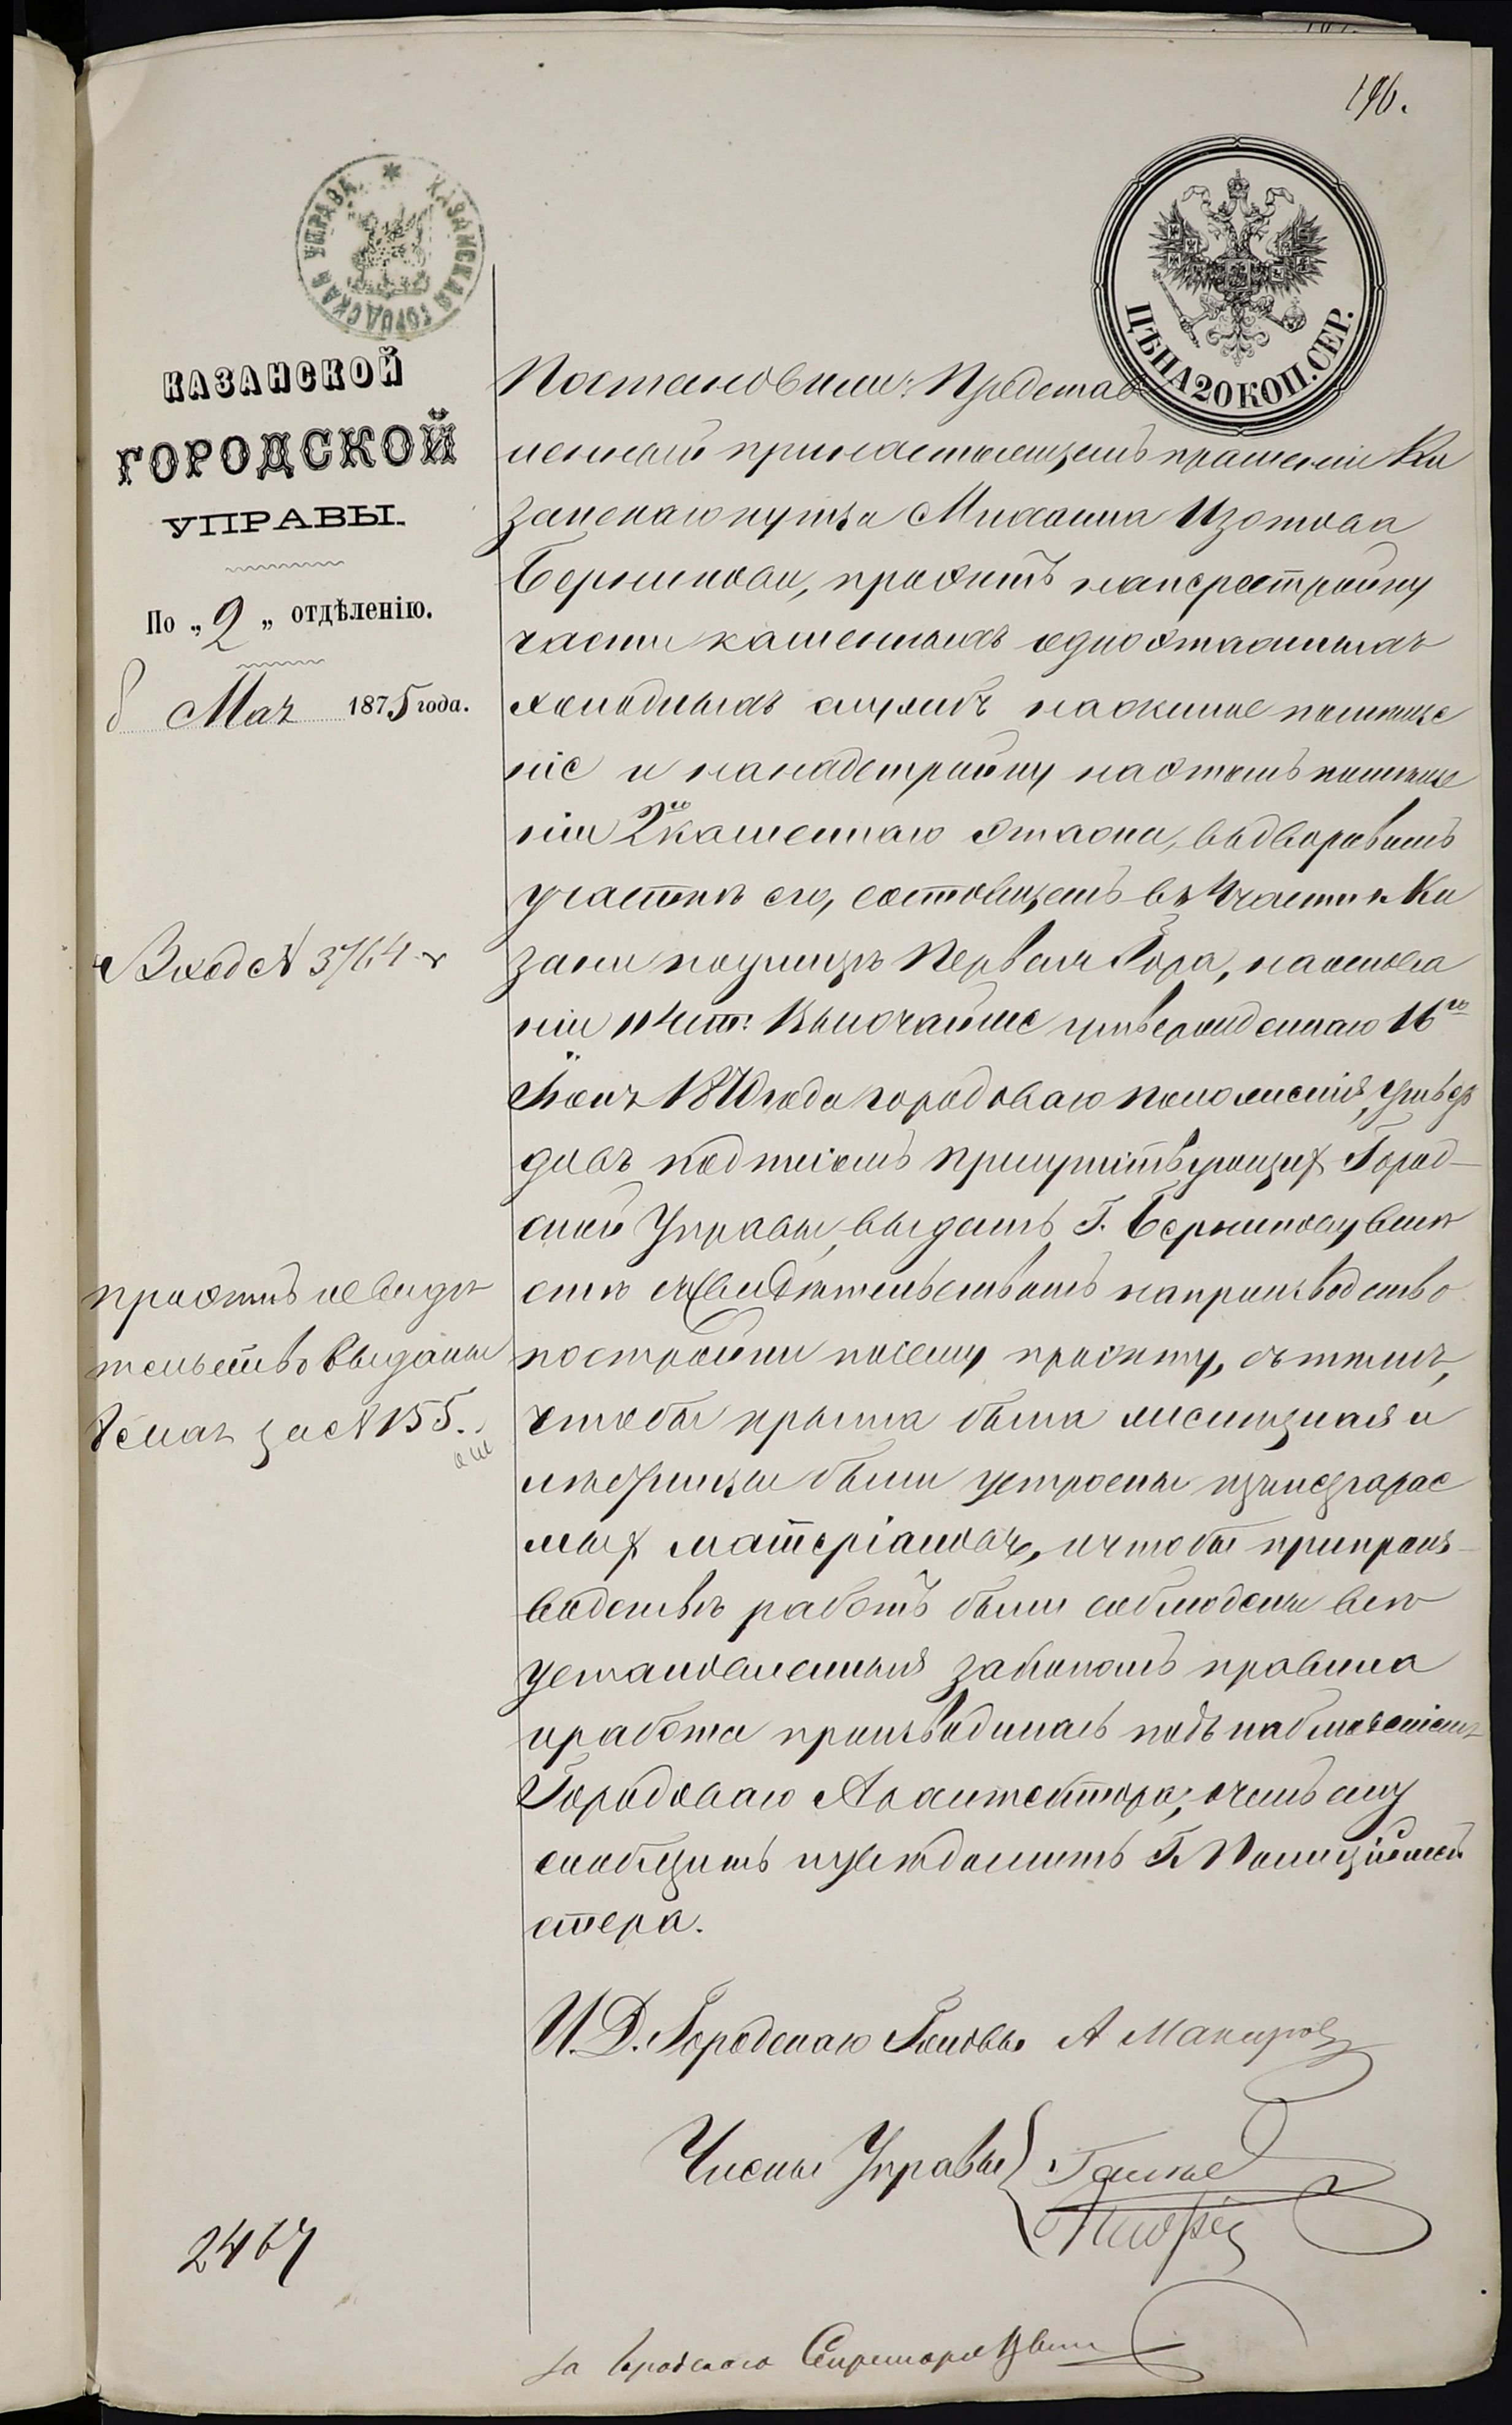 196.
КАЗАНСКАЯ ГОРОДСКАЯ УПРАВА
ЦѢНА 20 КОП. СЕР.
КАЗАНСКОЙ
ГОРОДСКОЙ
УПРАВЫ.
По „2„ отдѣленію.
8 Мая 1875 года.
Вход № 3764
проэктъ и свидѣ
тельство выданы
8 мая за № 155.
2467
Постановили: Представ
ленный при настоящемъ прошеніи Ка
занскаго купца Михаила Изотова
проэктъ на перестройку
части каменныхъ одноэтажныхъ
холодныхъ службъ на жилое помѣще
ніе и на надстройку на этомъ помѣще
ніи 2го каменнаго этажа, въ дворовомъ
участкѣ его, состоящемъ въ части г. Ка
зани по улицѣ Первая Гора, на основа
ніи ст: Высочайше утвержденнаго 16го
Іюня 1870 года городоваго положенія, утвер
дивъ подписомъ присутствующих Город-
ской Управы, выдать Г. вмѣ
стѣ съ свидѣтельствомъ на производство
постройки по сему проэкту, съ тѣмъ,
чтобы крыша была желѣзная и
лѣстницы были устроены изъ несгорае
мых матеріаловъ, и чтобы при произ-
водствѣ работъ были соблюдены всѣ
установленныя закономъ правила
и работа производилась подъ наблюденіемъ
Городоваго Архитектора; о чемъ ему
сообщить и увѣдомить Г. Полиціймей
стера.
И. Д. Городскаго Головы А Макаров
Члены Управы
за Городскаго Секретаря